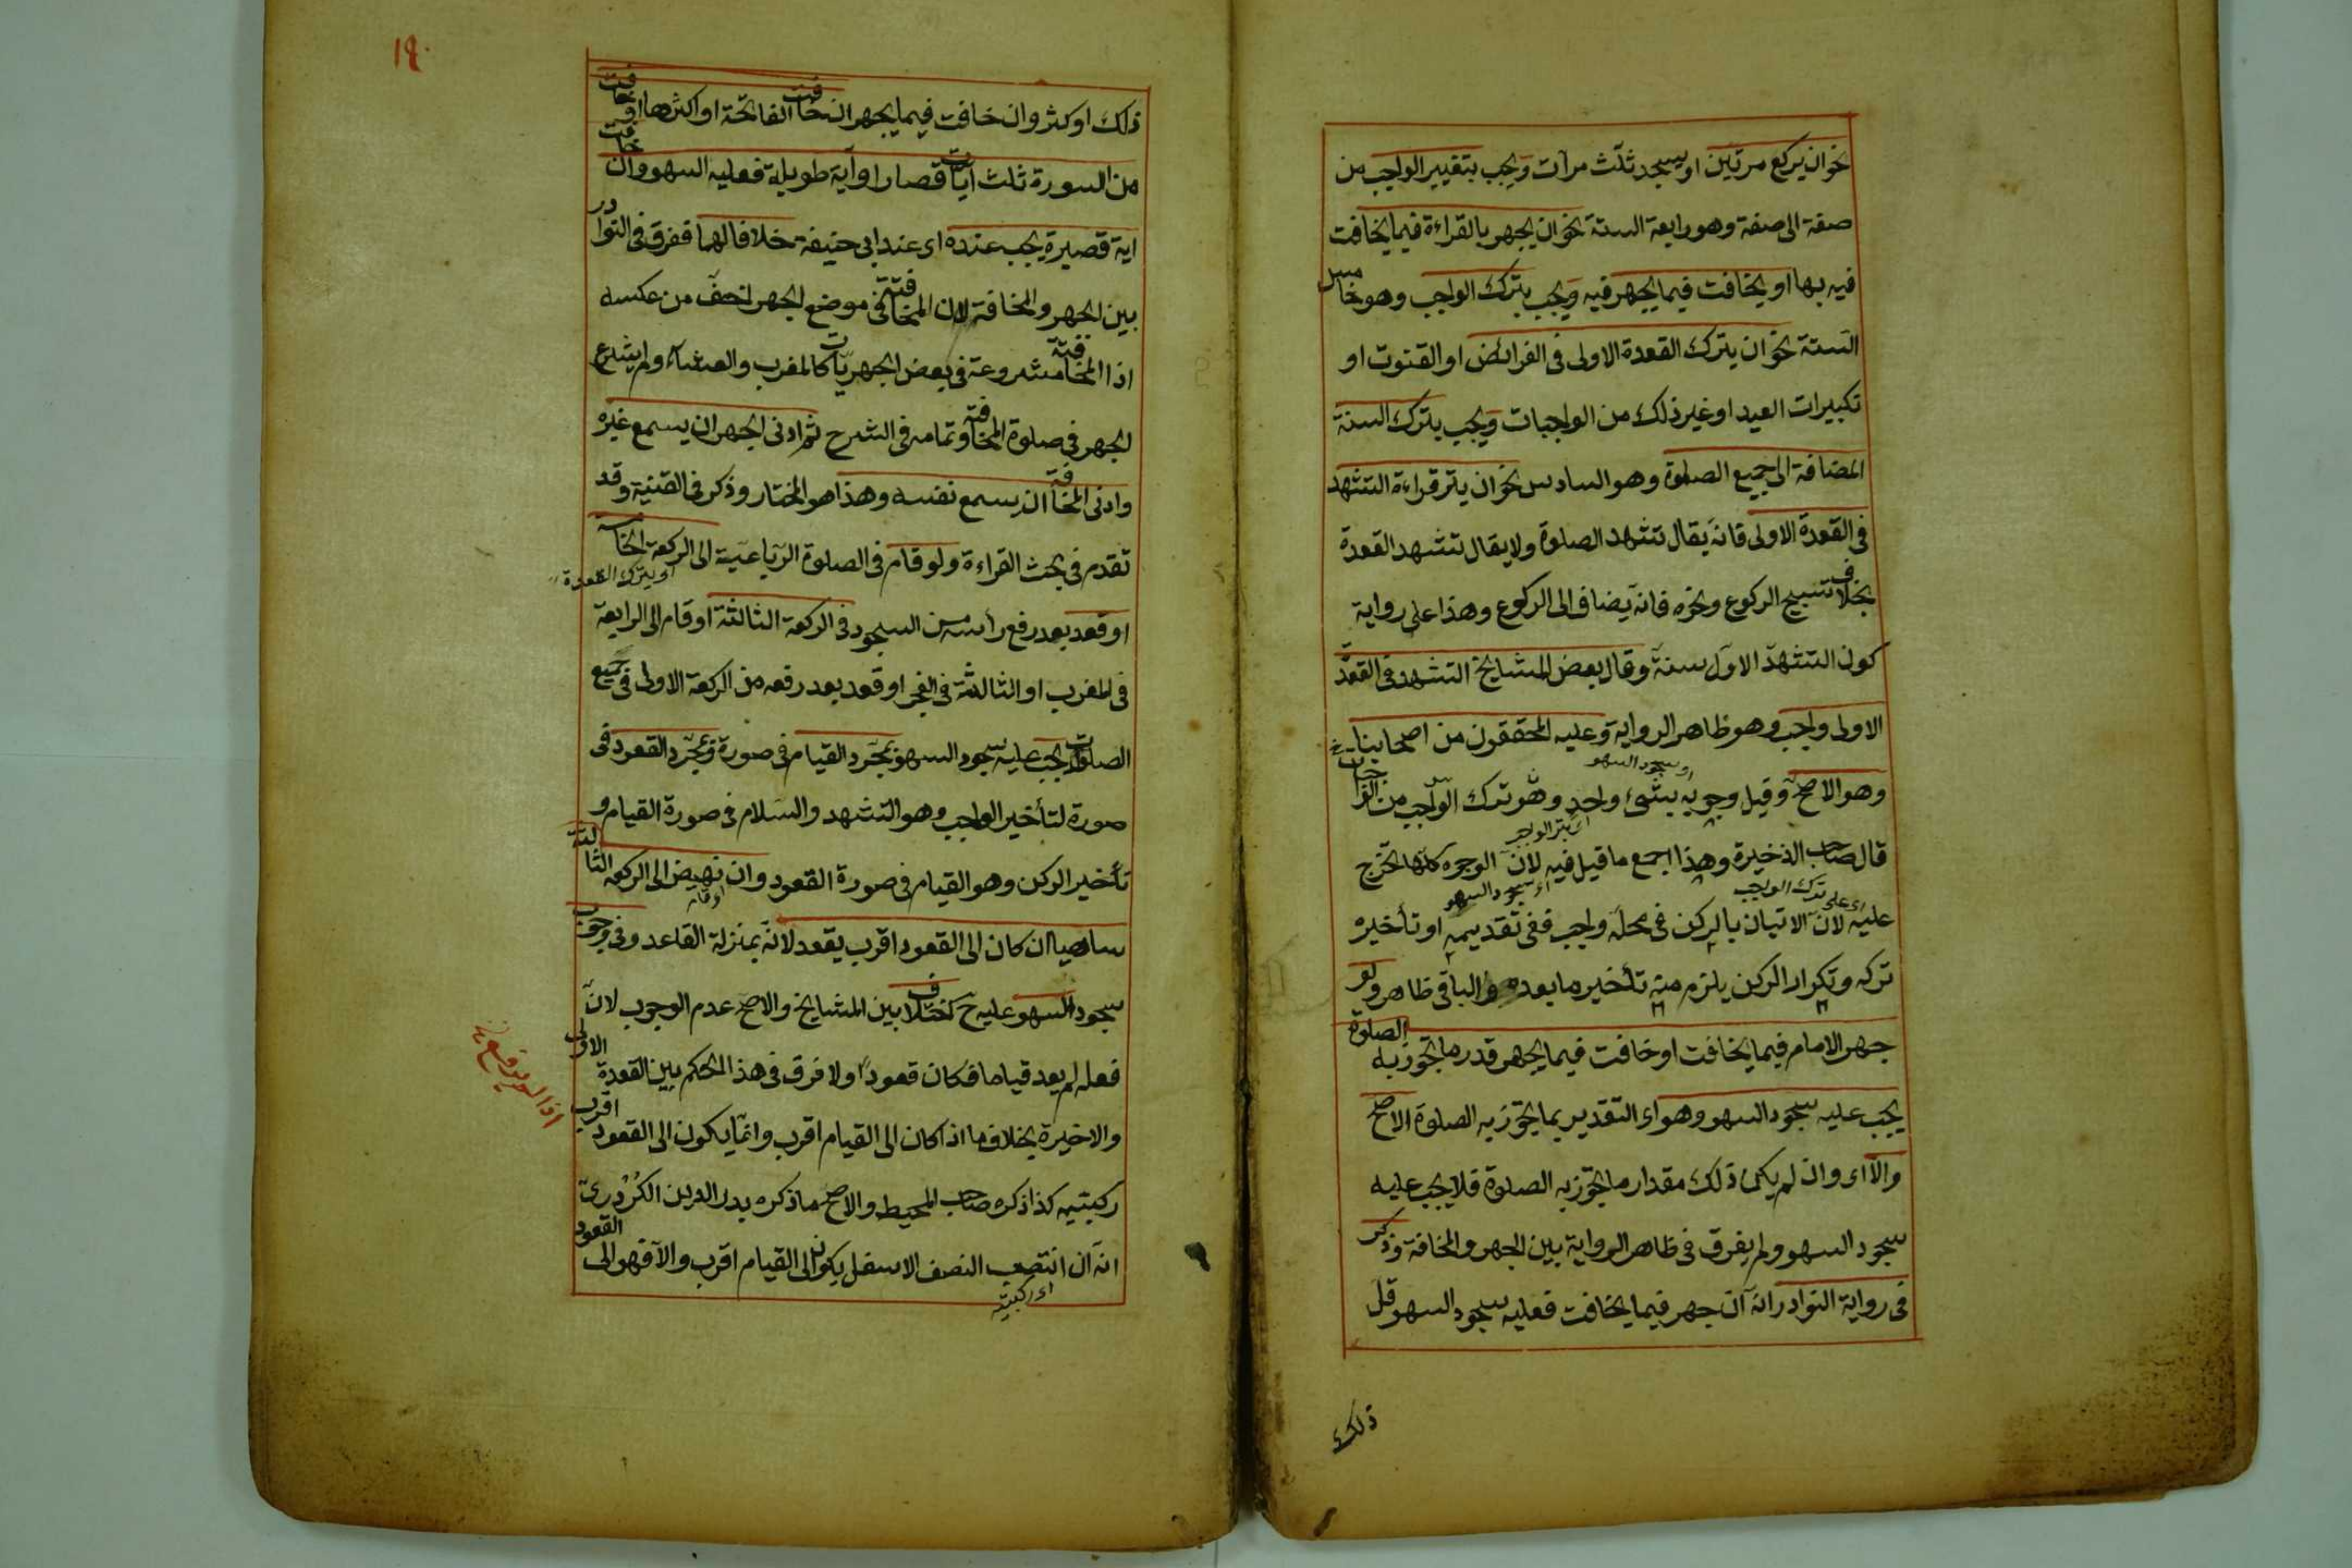 نحو ان يركع مرتين او يسجد ثلث مرات ويجب بتغيير الواجب من
صفة الى صفة وهو رابعة الستة نحو ان يجهر بالقراءة فيما يخافت
فيه بها او يخافت فيما يجهر فيه ويجب بترك الواجب وهو خامس
الستة نحو ان يترك القعدة الاولى فى الفرائض او القنوت او
تكبيرات العيد او غير ذلك من الواجبات ويجب بترك السنة
المضافة الى جميع الصلوة وهو السادس نحو ان يترك قراءة التشهد
فى القعدة الاولى فانه يقال تشهد الصلوة ولا يقال تشهد القعدة
بخلاف تسبيح الركوع ونحوه فانه يضاف الى الركوع وهذا على رواية
كون التشهد الاول سنة وقال بعض المشايخ التشهد فى القعدة
الاولى واجب وهو ظاهر الرواية وعليه المحققون من اصحابنا
اى سجود السهو
وهو الاصح وقيل وجوبه بشىء واحد وهو ترك الواجب من
اى بترك الواجب
قال صاحب الذخيرة وهذا اجمع ما قيل فيه لان الوجوه كلها تخرج
اى على ترك الواجب
اى سجود السهو
عليه لان الاتيان بالركن فى محله واجب ففى تقديمه او تأخيره
تركه وتكرار الركن يلزم منه تأخير ما بعده والباقى ظاهر ولو
جهر الامام فيما يخافت او خافت فيما يجهر قدر ما تجوز به الصلوة
يجب عليه سجود السهو وهو اى التقدير بما تجوز به الصلوة الاصح
والا اى وان لم يكن ذلك مقدار ما تجوز به الصلوة فلا يجب عليه
سجود السهو ولم يفرق فى ظاهر الرواية بين الجهر والمخافة وذكر
فى رواية النوادر انه ان جهر فيما يخافت فعليه سجود السهو قل
ذلك
١٩٠
ذلك او كثر وان خافت فيما يجهر ان خافت الفاتحة او اكثرها او خافت
من السورة ثلث آيات قصار او آية طويلة فعليه السهو وان خافت
اية قصيرة يجب عنده اى عند ابى حنيفة خلافا لهما ففرق فى النوادر
بين الجهر والمخافة لان المخافتة فى موضع الجهر اخف من عكسه
اذا المخافتة مشروعة فى بعض الجهريات كالمغرب والعشاء ولم يشرع
الجهر فى صلوة المخافتة وتمامه فى الشرح ثم ادنى الجهر ان يسمع غيره
وادنى المخافة ان يسمع نفسه وهذا هو المختار وذكر فى القنية وقد
تقدم فى بحث القراءة ولو قام فى الصلوة الرباعية الى الركعة الخامسة
او بترك القعدة
او قعد بعد رفع رأسه من السجود فى الركعة الثالثة او قام الى الرابعة
فى المغرب او الثالثة فى الفجر او قعد بعد رفعه من الركعة الاولى فى جميع
الصلوات يجب عليه سجود السهو بمجرد القيام فى صورة وبمجرد القعود فى
صورة لتأخير الواجب وهو التشهد والسلام فى صورة القيام و
تأخير الركن وهو القيام فى صورة القعود وان نهض الى الركعة الثالثة
اى قام
ساهيا ان كان الى القعود اقرب يقعد لانه بمنزلة القاعد وفى وجوب
سجود السهو عليه ح اختلاف بين المشايخ والاصح عدم الوجوب لان
فعله لم يعد قياما فكان قعودا ولا فرق فى هذا الحكم بين القعدة الاولى
والاخيرة بخلاف ما اذا كان الى القيام اقرب وانما يكون الى القعود اقرب
اذا لم يرفع
ركبتيه كذا ذكره صاحب المحيط والاصح ما ذكره بدر الدين الكردرى
انه ان انتصب النصف الاسفل يكون الى القيام اقرب والا فهو الى القعود
اى ركبتيه